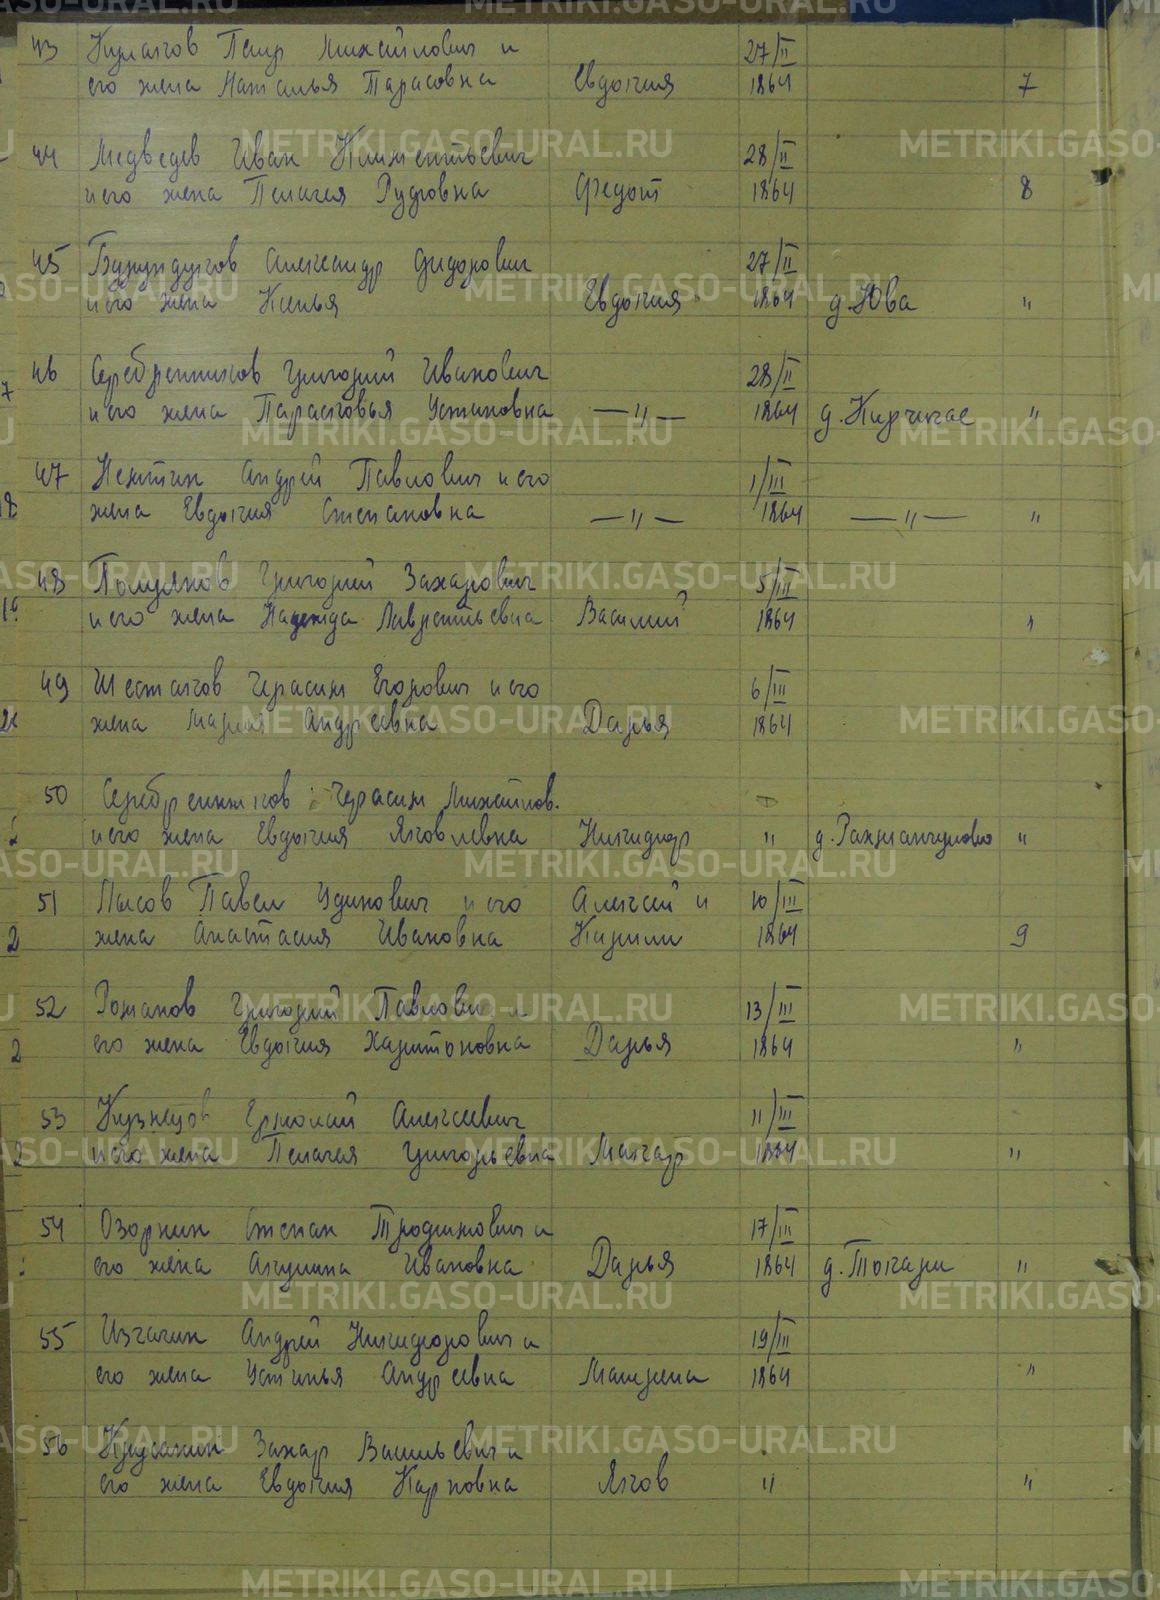 43 Кулаков Петр Михайлович и 27/II
его жена Наталья Тарасовна Евдокия 1864 7
44 Медведев Иван Климентьевич 28/II
и его жена Пелагея Федот 1864 8
45 Бурундуков Александр Сидорович 27/II
и его жена Ксенья Евдокия 1864 д. Юва "
46 Серебренников Григорий Иванович 28/II
и его жена Парасковья Устиновна —"— 1864 д. Киргишас "
47 Андрей Павлович и его 1/III
жена Евдокия Степановна —"— 1864 —"— "
48 Полуянов Григорий Захарович 5/III
и его жена Надежда Лаврентьевна Василий 1864 "
49 Шестаков Герасим Егорович и его 6/III
жена Мария Андреевна Дарья 1864 "
50 Серебренников Герасим Михайлов.
и его жена Евдокия Яковлевна Никифор " д. Рахмангулово "
51 Лысов Павел и его Алексей и 10/III
жена Анастасия Ивановна Кирилл 1864 9
52 Рожанов Григорий Павлович и 13/III
его жена Евдокия Харитоновна Дарья 1864 "
53 Кузнецов Ермолай Алексеевич 11/III
и его жена Пелагея Григорьевна Макар 1864 "
54 Озорнин Степан Трофимович и 17/III
его жена Акулина Ивановна Дарья 1864 д. Токари "
55 Изгагин Андрей Никифорович и 19/III
его жена Устинья Андреевна Матрена 1864 "
56 Захар Васильевич и
его жена Евдокия Карповна Яков " "
METRIKI.GASO-URAL.RU